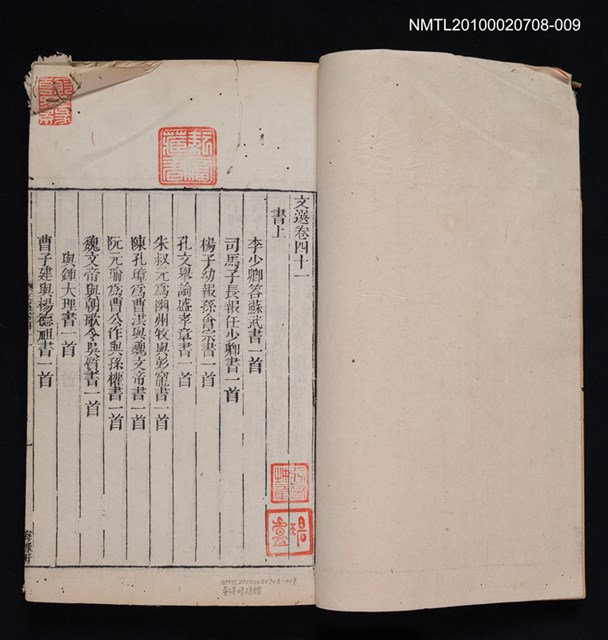 NMTL20100020708-009
文選卷四十一
書上
李少卿答蘇武書一首
司馬子長報任少卿書一首
楊子幼報孫會宗書一首
孔文舉論盛孝章書一首
朱叔元爲幽州牧與彭寵書一首
陳孔璋爲曹洪與魏文帝書一首
阮元瑜爲曹公作與孫權書一首
魏文帝與朝歌令吳質書一首
與鍾大理書一首
曹子建與楊德祖書一首
藏書
NMTL20100020708-009